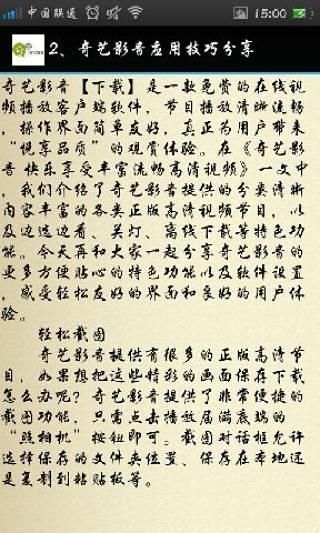 中国联通 15:00
2、奇艺影音应用技巧分享
奇艺影音【下载】是一款免费的在线视
频播放客户端软件，节目播放清晰流畅
，操作界面简单友好，真正为用户带来
“悦享品质”的观赏体验。在《奇艺影
音 快乐享受丰富流畅高清视频》一文中
，我们介绍了奇艺影音提供的分类清晰
内容丰富的各类正版高清视频节目，以
及边选边看、关灯、离线下载等特色功
能。今天再和大家一起分享奇艺影音的
更多方便贴心的特色功能以及软件设置
，感受轻松友好的界面和良好的用户体
验。
轻松截图
奇艺影音提供有很多的正版高清节
目，如果想把这些精彩的画面保存下载
怎么办呢？奇艺影音提供了非常便捷的
截图功能，只需点击播放届满底端的
“照相机”按钮即可。截图对话框允许
选择保存的文件夹位置、保存在本地还
是复制到粘贴板等。